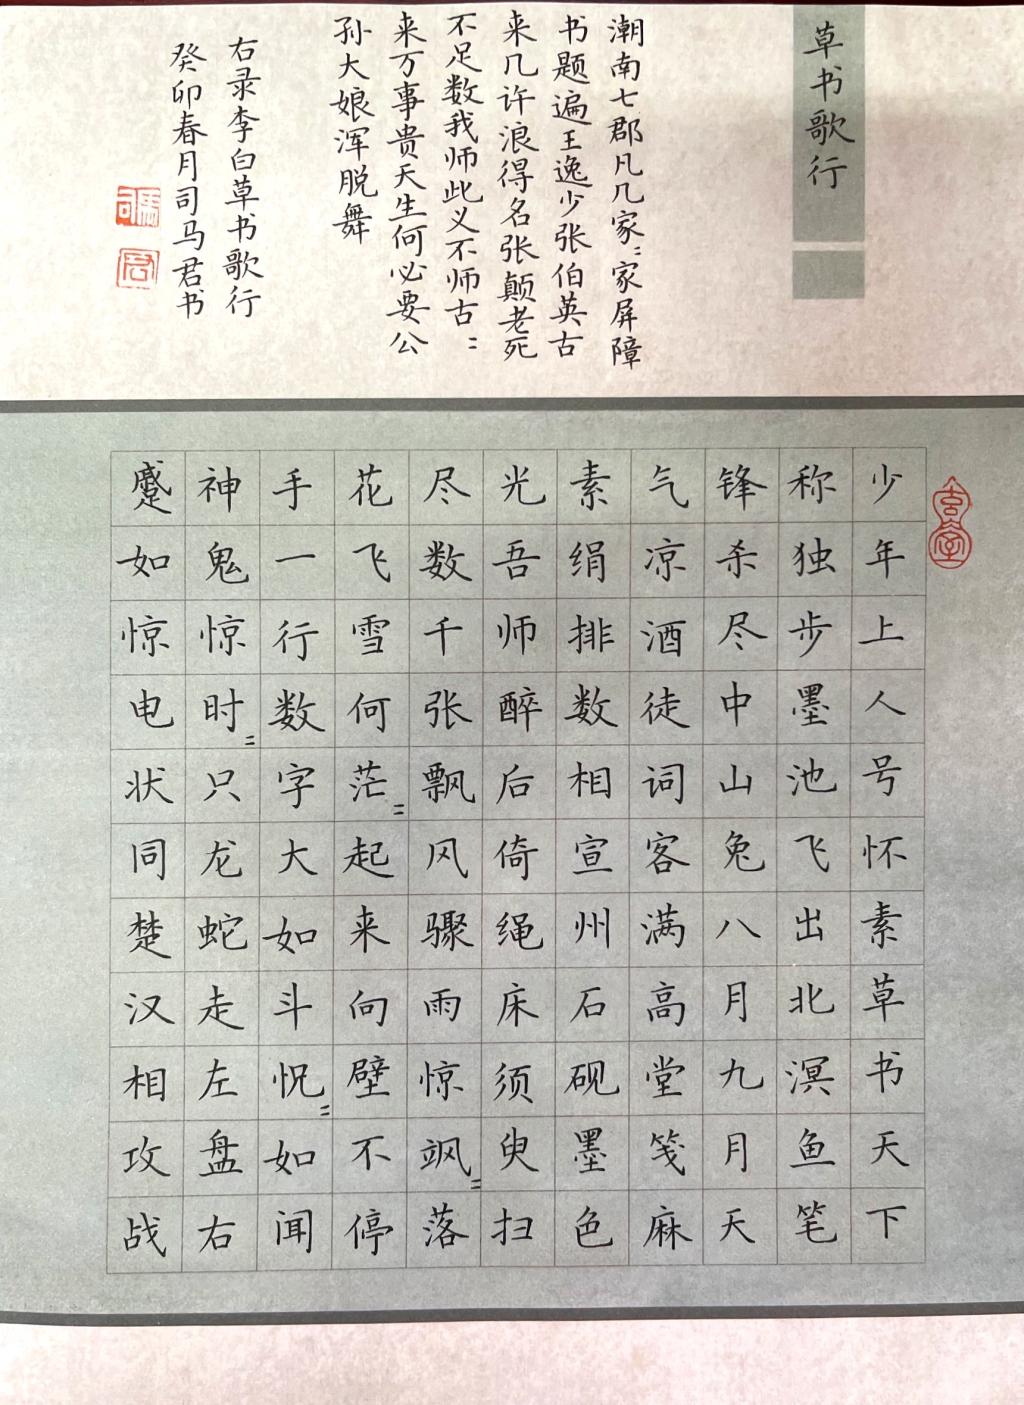 草书歌行
少年上人号怀素草书天下
称独步墨池飞出北溟鱼笔
锋杀尽中山兔八月九月天
气凉酒徒词客满高堂笺麻
素绢排数相宣州石砚墨色
光吾师醉后倚绳床须臾扫
尽数千张飘风骤雨惊飒〻落
花飞雪何茫〻起来向壁不停
手一行数字大如斗怳〻如闻
神鬼惊时〻只龙蛇走左盘右
蹙如惊电状同楚汉相攻战
潮南七郡凡几家〻家屏障
书题遍王逸少张伯英古
来几许浪得名张颠老死
不足数我师此义不师古〻
来万事贵天生何必要公
孙大娘浑脱舞
右录李白草书歌行
癸卯春月司马君书
司馬
君